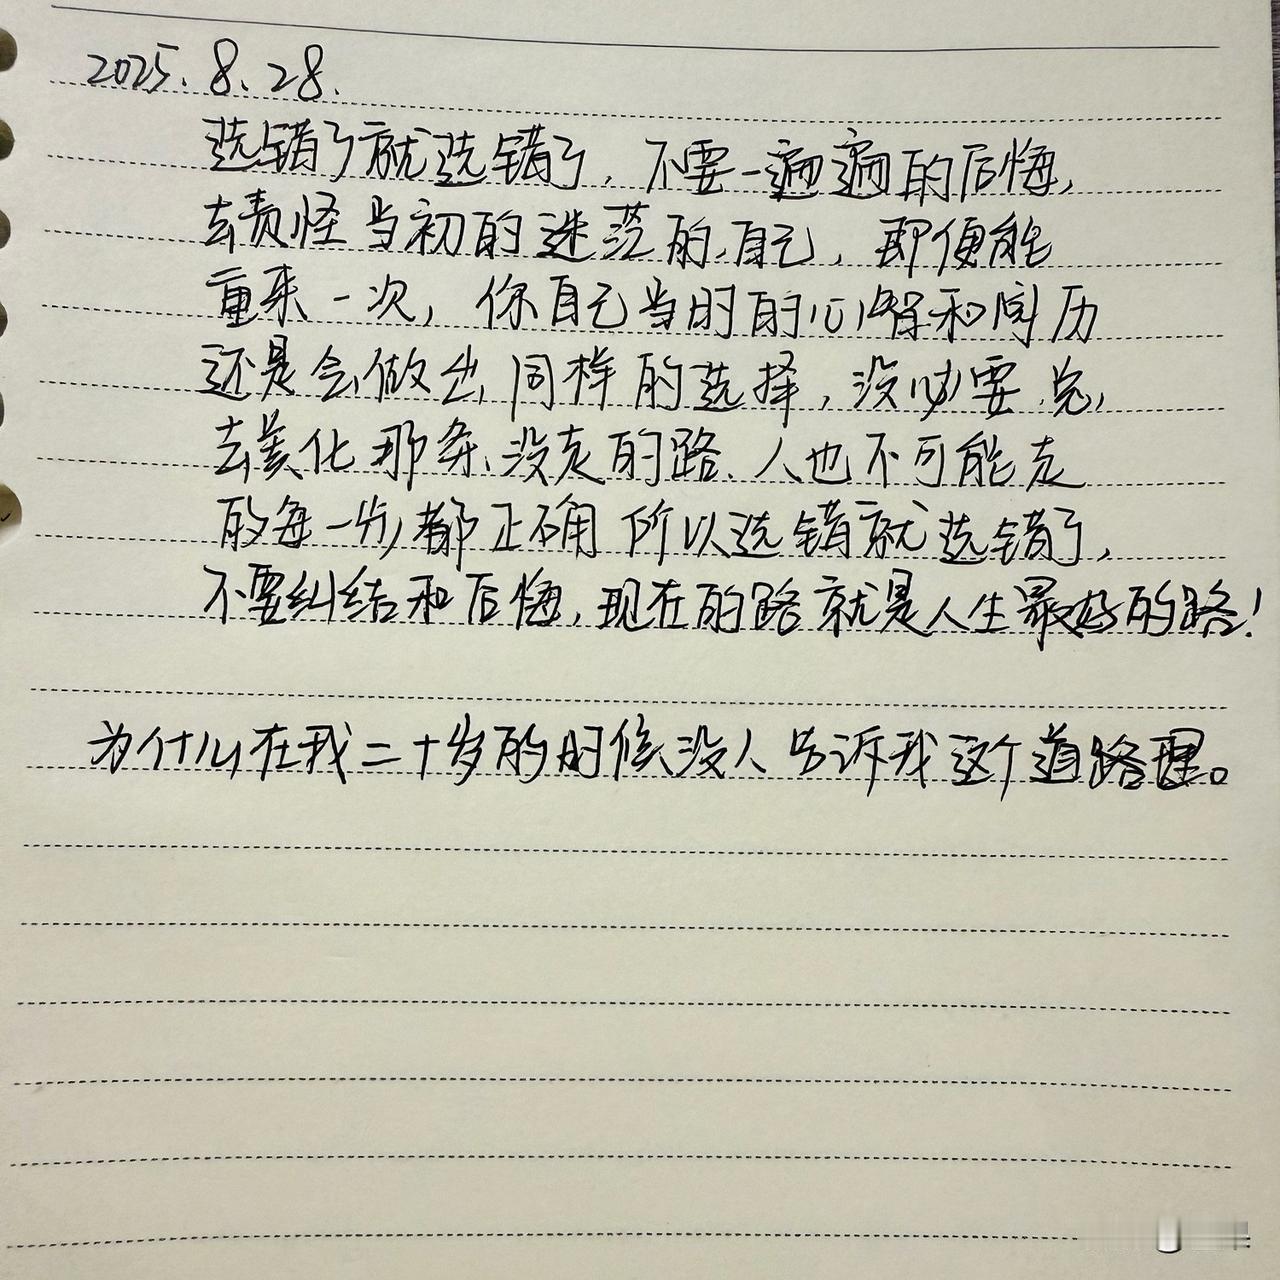 2025.8.28.
选错了就选错了，不要一遍遍的后悔，
去责怪当初的迷茫的自己，即便能
重来一次，你自己当时的心智和阅历
还是会做出同样的选择，没必要总
去美化那条没走的路、人也不可能走
的每一步都正确 所以选错就选错了，
不要纠结和后悔，现在的路就是人生最好的路！
为什么在我二十岁的时候没人告诉我这个道路理。